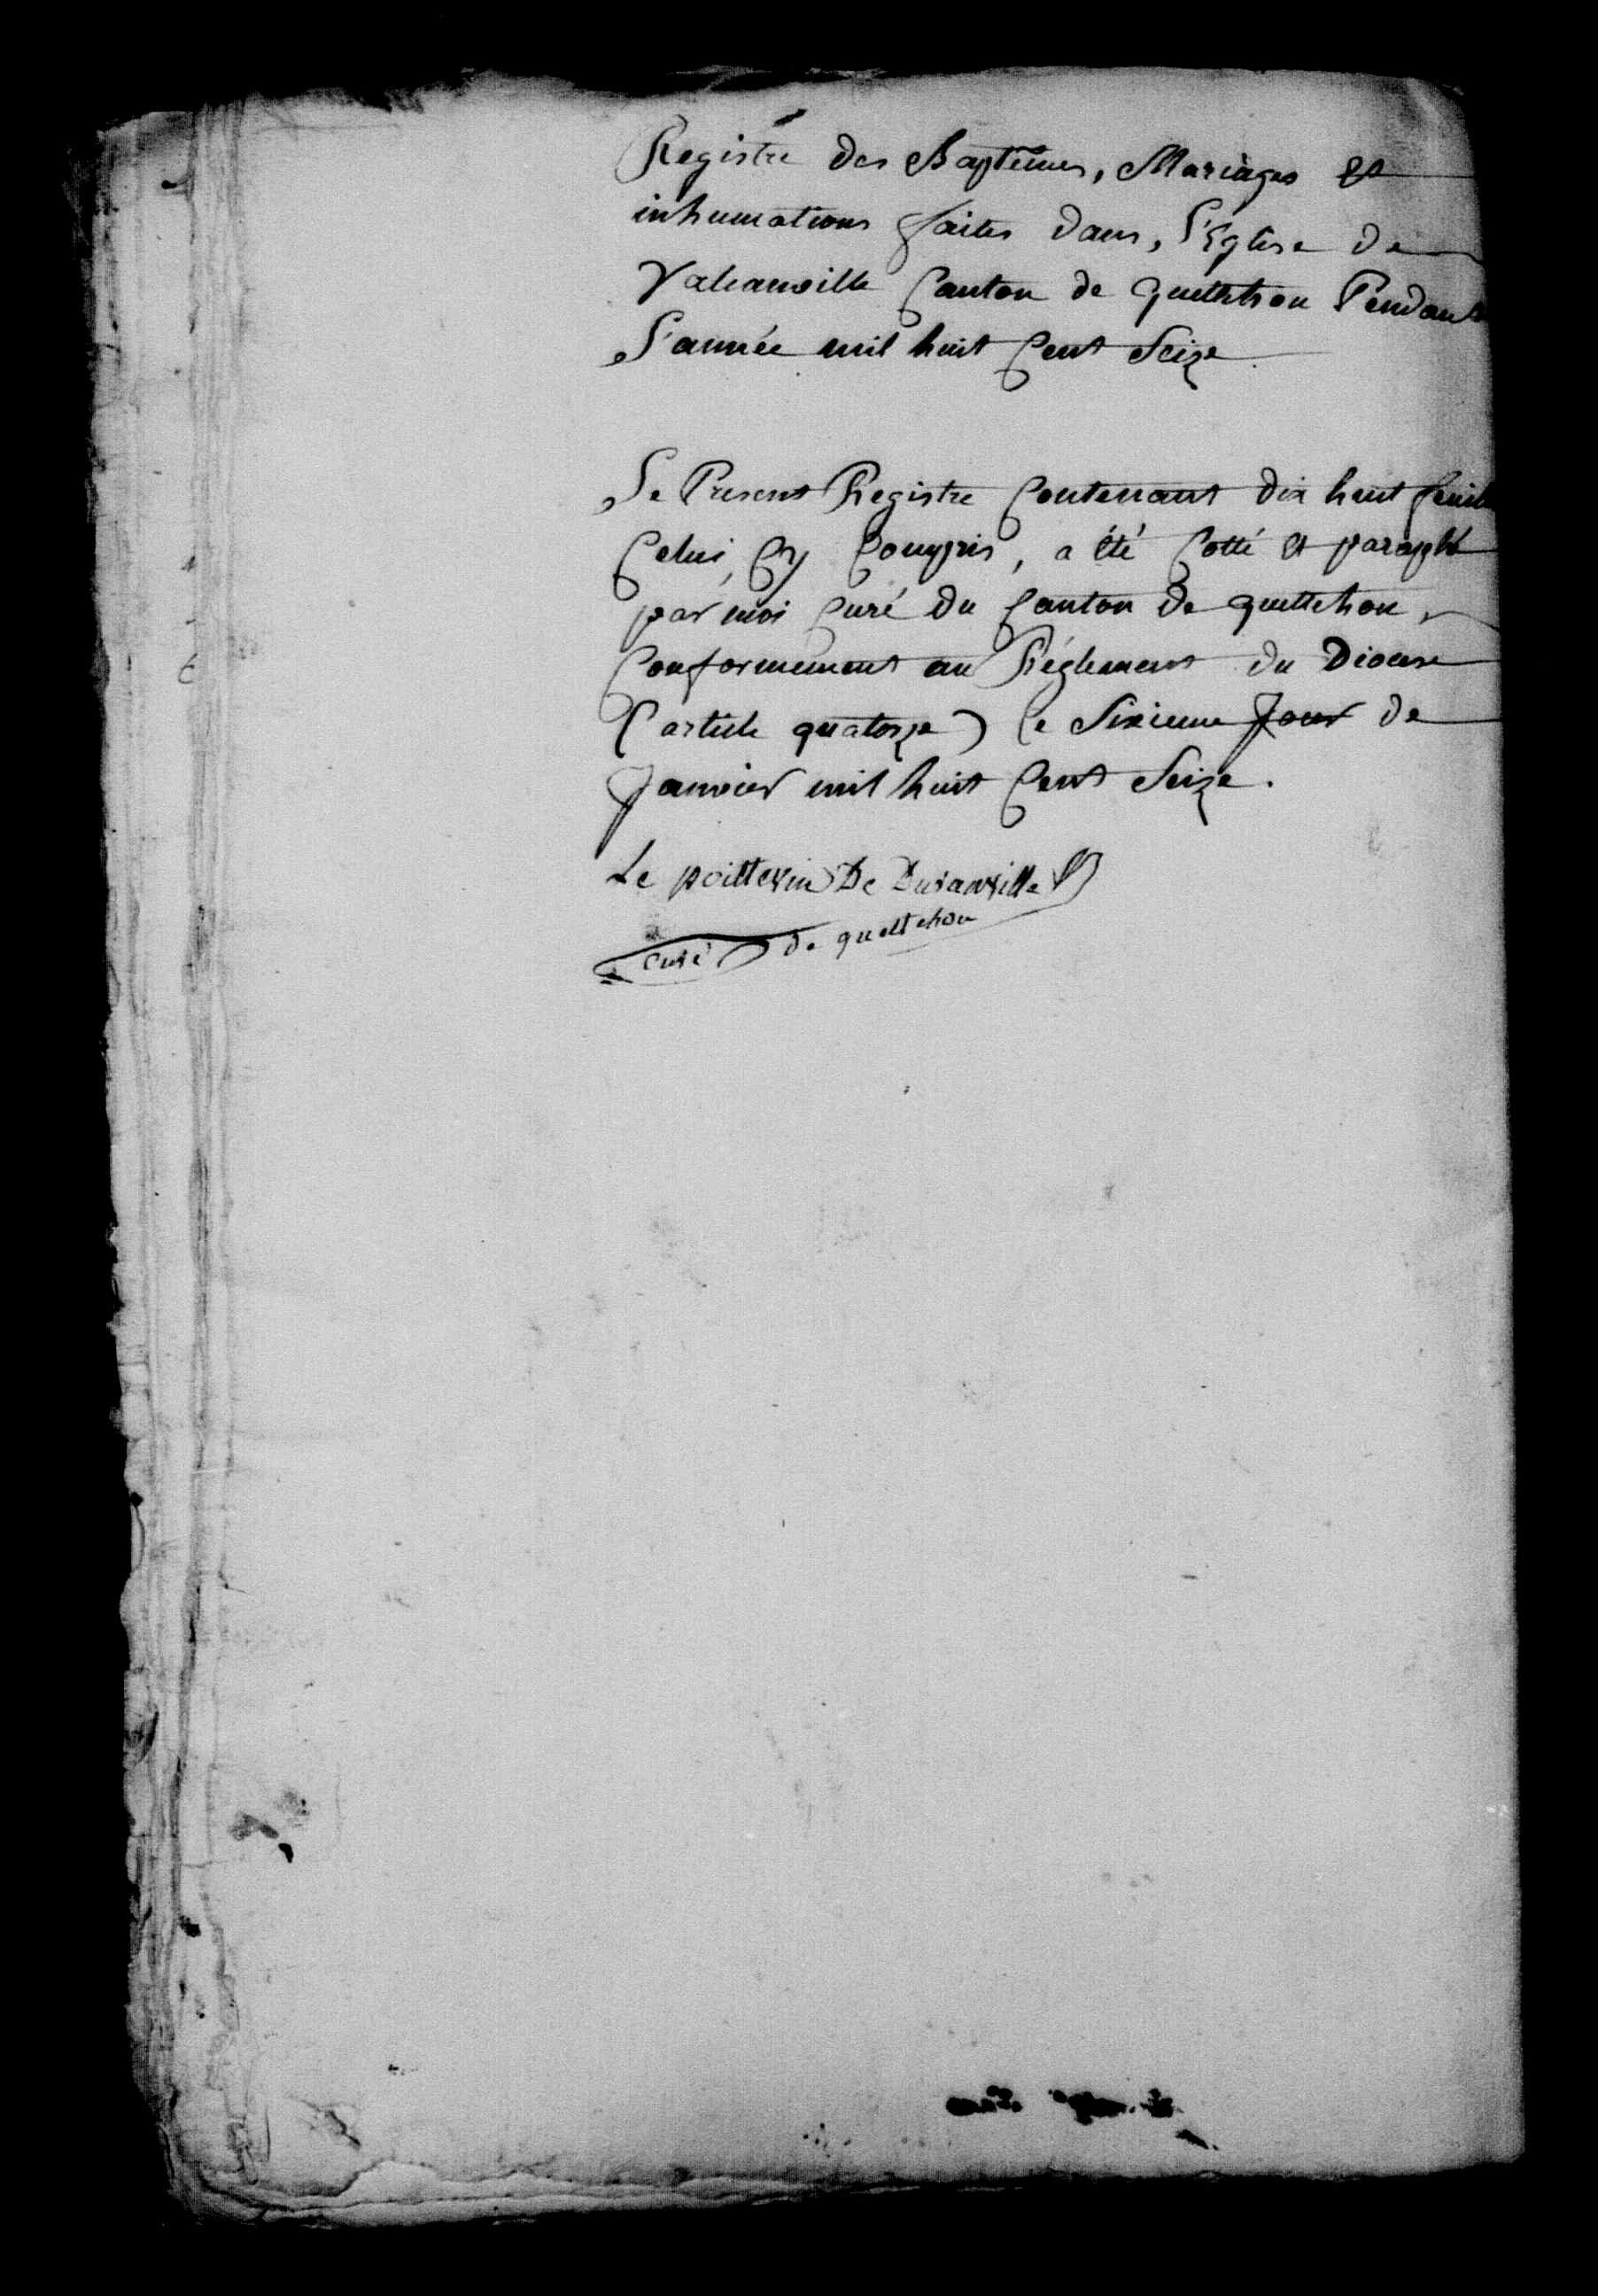 Registre des Baptêmes, Mariages et
inhumations faites dans, l'Eglise de
Valcanville Canton de quettehou Pendant
l'année mil huit Cent Seize
Le Present Registre Contenant dix huit feuil
Celui, Cy Compris, a été Cotté et paraphé
par moi Curé du Canton de quettehou,
Conformement au Réglement du Diocese
(article quatorze) le Sixieme Jour de
Janvier mil huit Cent Seize.
Le poittevin De Duranville
curé de quettehou